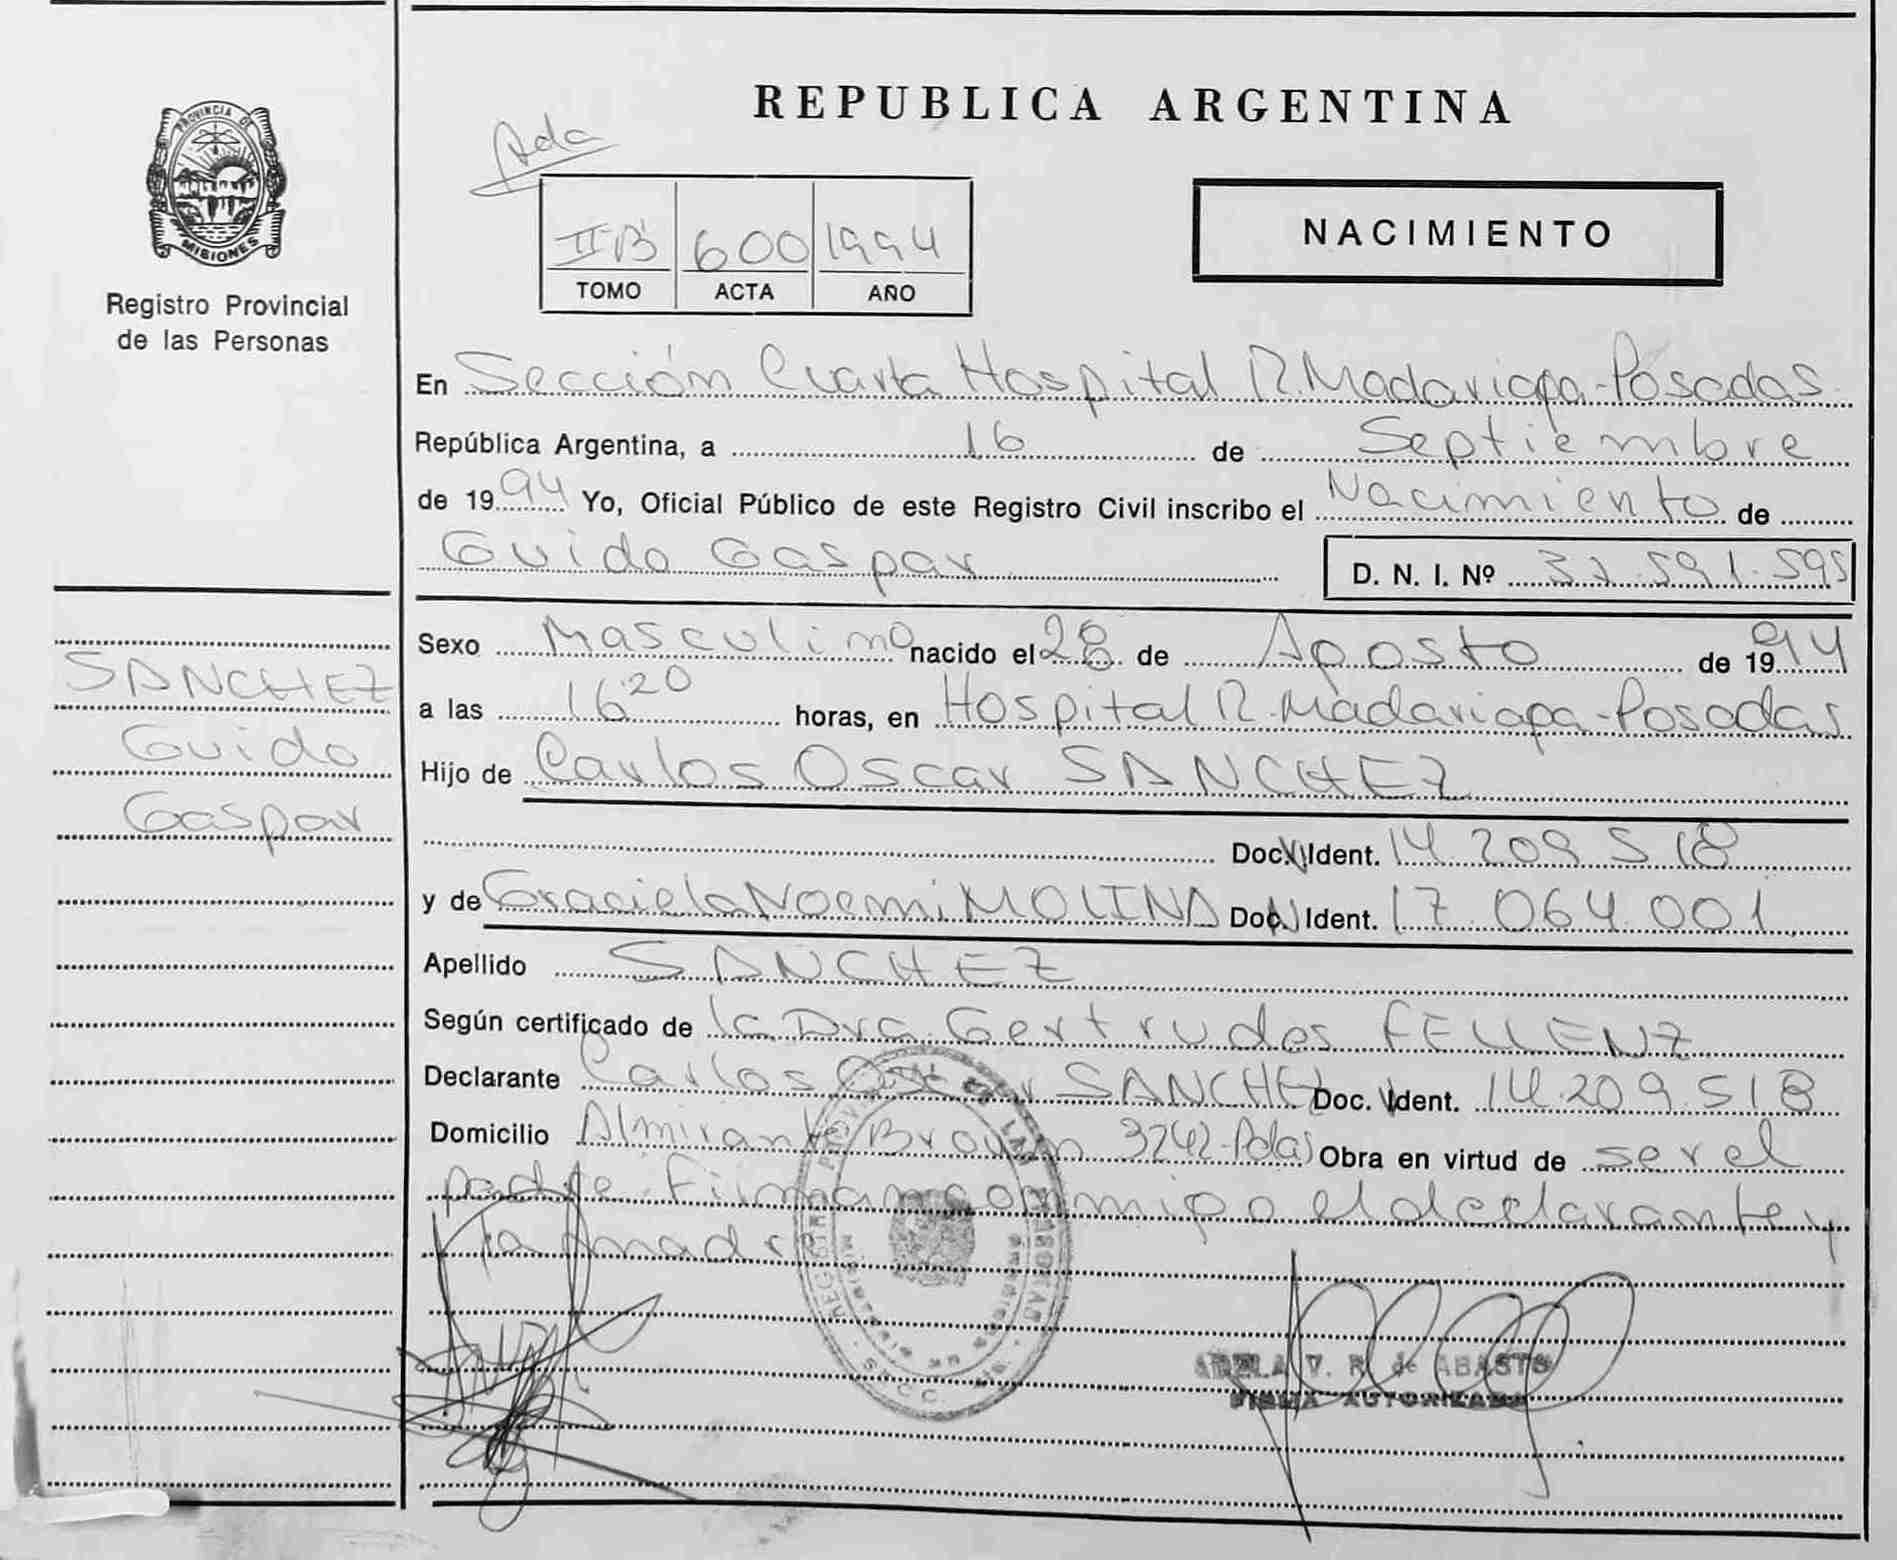 PROVINCIA DE
MISIONES
Registro Provincial
de las Personas
SANCHEZ
Guido
Gaspar
REPUBLICA ARGENTINA
NACIMIENTO
II B 600 1994
TOMO ACTA AÑO
En Sección Cuarta Hospital R. Madariaga-Posadas
República Argentina, a 16 de Septiembre
de 1994 Yo, Oficial Público de este Registro Civil inscribo el Nacimiento de
Guido Gaspar D. N. I. Nº
Sexo Masculino nacido el 28 de Agosto de 1994
a las 16 20 horas, en Hospital R. Madariaga-Posadas
Hijo de Carlos Oscar SANCHEZ
Doc. Ident. 14.209.518
y de Graciela Noemi MOLINA Doc. Ident. 17.064.001
Apellido SANCHEZ
Según certificado de la Dra. Gertrudes FELLENZ
Declarante Carlos Oscar SANCHEZ Doc. Ident. 14.209.518
Domicilio Almirante Brown 3242-Pdas Obra en virtud de ser el
padre. Firman conmigo el declarante y
la madre
ADELA V. R. de ABASTO
FIRMA AUTORIZADA